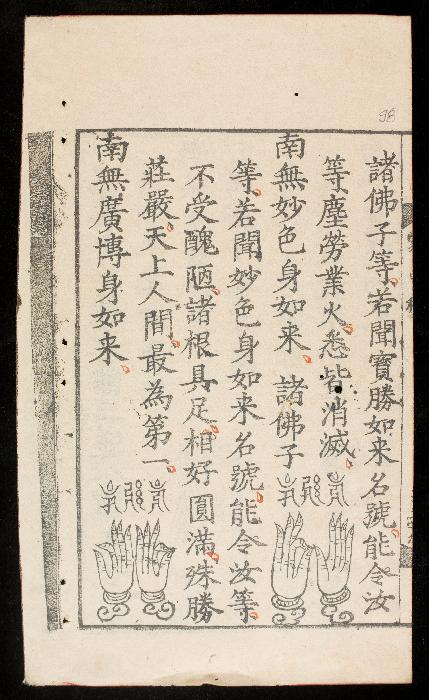 諸佛子等若聞寶勝如来名號能令汝
等塵勞業火悉皆消滅
南無妙色身如来 諸佛子
等若聞妙色身如来名號能令汝等
不受醜陋諸根具足相好圓滿殊勝
莊嚴天上人間最為第一
南無廣博身如来